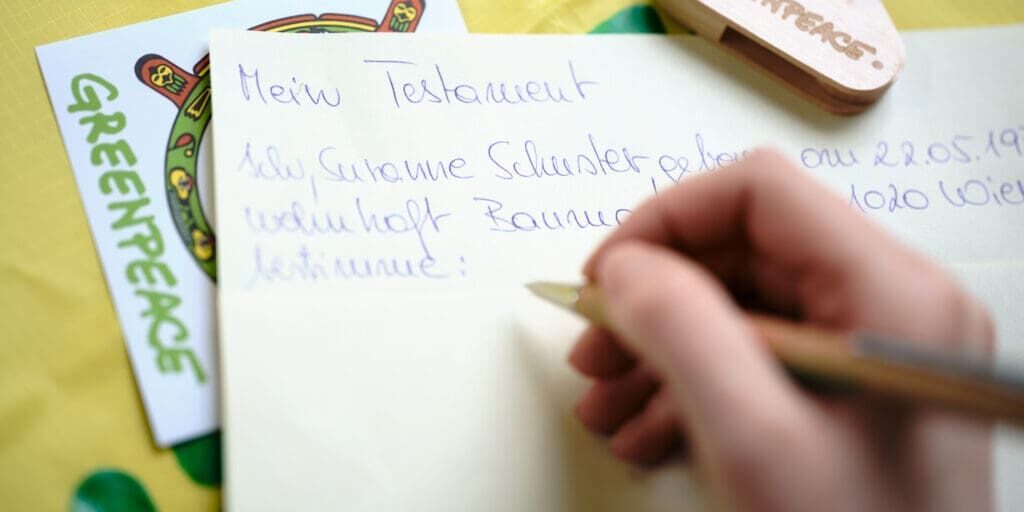 GREENPEACE
NPEACE.
Mein Testament
Ich, Susanne Schuster, gebo am 22.05.197
wohnhaft Bauma 1020 Wien
bestimme: